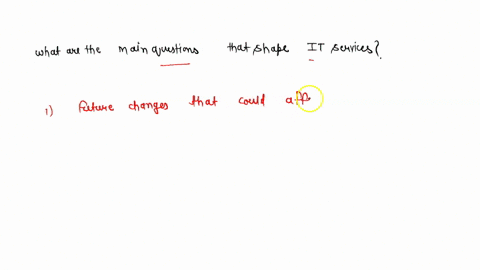 what are the main questions that shape IT services?
1) future changes that could aff